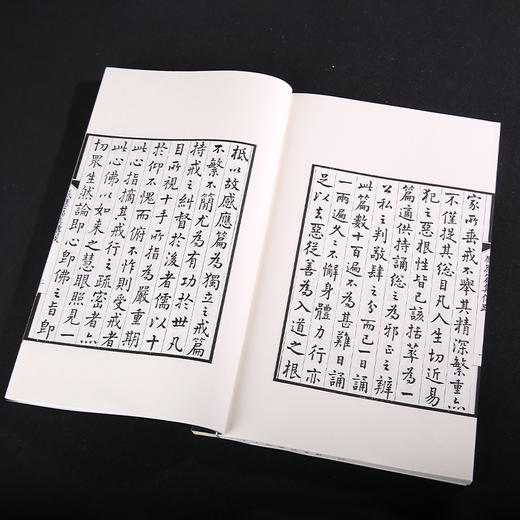 家所垂戒不舉其精深繁重亦
不僅提其總目凡人生切近易
犯之惡根性皆已該括萃為一
篇適供持誦總之為邪正之辨
公私之判敬肆之分而已一日誦
此篇數十百遍不為甚難日誦
一兩遍久之不懈身體力行亦
足以去惡從善為入道之根
柢以故感應篇為獨立之戒篇
不繁不簡尤為有功於世凡
持戒之糾督於後者儒以十
目所視十手所指為嚴重期
於仰不愧而俯不怍則受戒者
此心指摘其戒行之疏密者亦
此心佛以如来之慧眼照見一
切眾生然論即心即佛之旨即